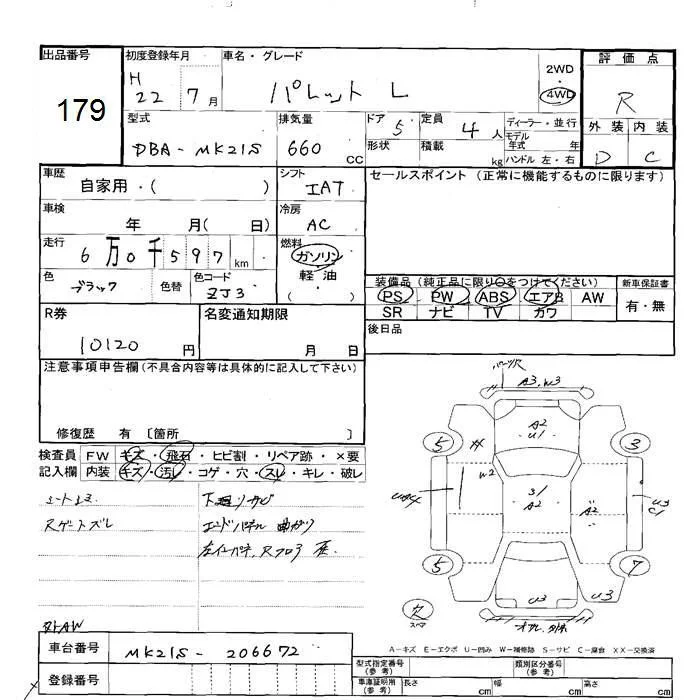 出品番号
179
初度登録年月
H 22 7月
車名・グレード
パレット L
2WD
・
4WD
評価点
R
外装 内装
D C
型式
DBA-MK21S
排気量
660 CC
ドア 5
形状
定員 4人
積載 kg
ディーラー・並行
モデル年式 年
ハンドル 左・右
車歴
自家用・( )
シフト
IAT
セールスポイント (正常に機能するものに限ります)
車検
年 月( 日)
冷房
AC
走行
6万0千597km
燃料
ガソリン
軽油
( )
色
ブラック
色替
色コード
ZJ3
装備品(純正品に限り○をつけてください)
PS PW ABS エアB AW
SR ナビ TV カワ
新車保証書
有・無
R券
10120円
名変通知期限
月 日
後日品
注意事項申告欄(不具合内容等は具体的に記入して下さい)
修復歴 有 〔箇所 〕
検査員 FW キズ・飛石・ヒビ割・リペア跡・×要
記入欄 内装 キズ・汚レ・コゲ・穴・スレ・キレ・破レ
シートヨゴレ
下廻りサビ
エンドパネル曲がり
A3.W3
A2
U1
5
3
W2
S1
A2
U3
C1
5
7
U3
U3
欠
スペア
A-キズ E-エクボ U-凹み W-補修跡 S-サビ C-腐食 XX-交換済
車台番号
MK21S-206672
登録番号
型式指定番号(参考)
類別区分番号(参考)
車庫証明用(参考)
長さ cm
幅 cm
高さ cm